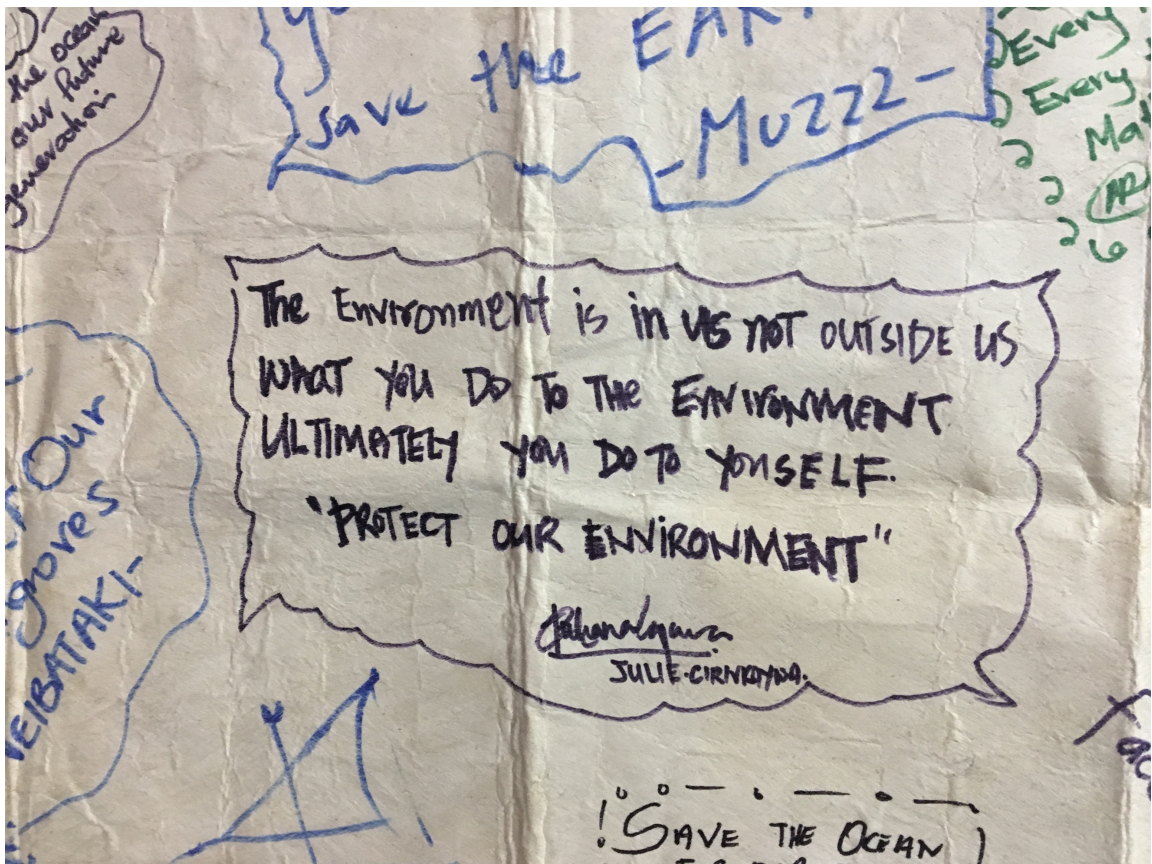 the ocean
our future
generation
save the
-Muzzz-
Every
Every
The Environment is in us not OUTSIDE US
WHAT YOU DO TO THE ENVIRONMENT
ULTIMATELY YOU DO TO YOUSELF.
"PROTECT OUR ENVIRONMENT"
JULIE
Our
groves
SAVE THE OCEAN